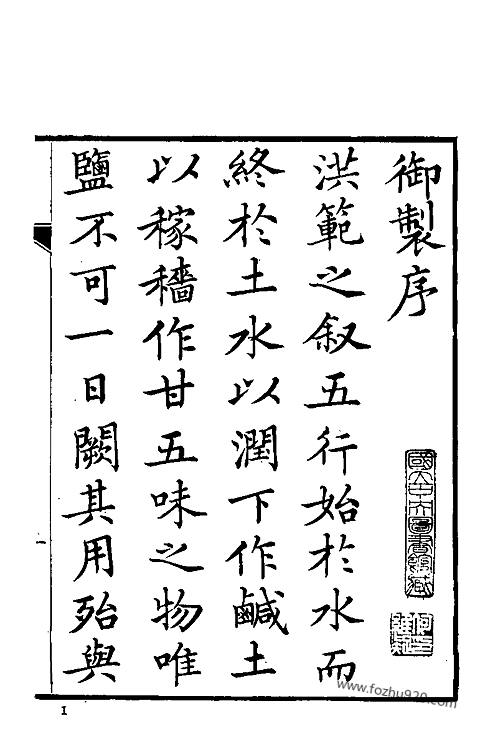 御製序
洪範之叙五行始於水而
終於土水以潤下作鹹土
以稼穡作甘五味之物唯
鹽不可一日闕其用殆與
國立中央圖書館藏
www.fozhu920.com
1